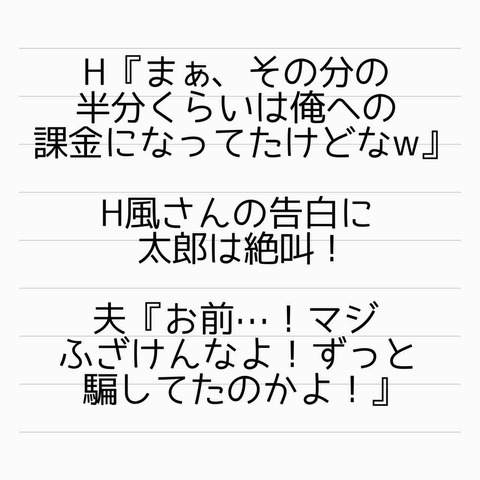 H『まぁ、その分の
半分くらいは俺への
課金になってたけどなw』
H風さんの告白に
太郎は絶叫！
夫『お前…！マジ
ふざけんなよ！ずっと
騙してたのかよ！』